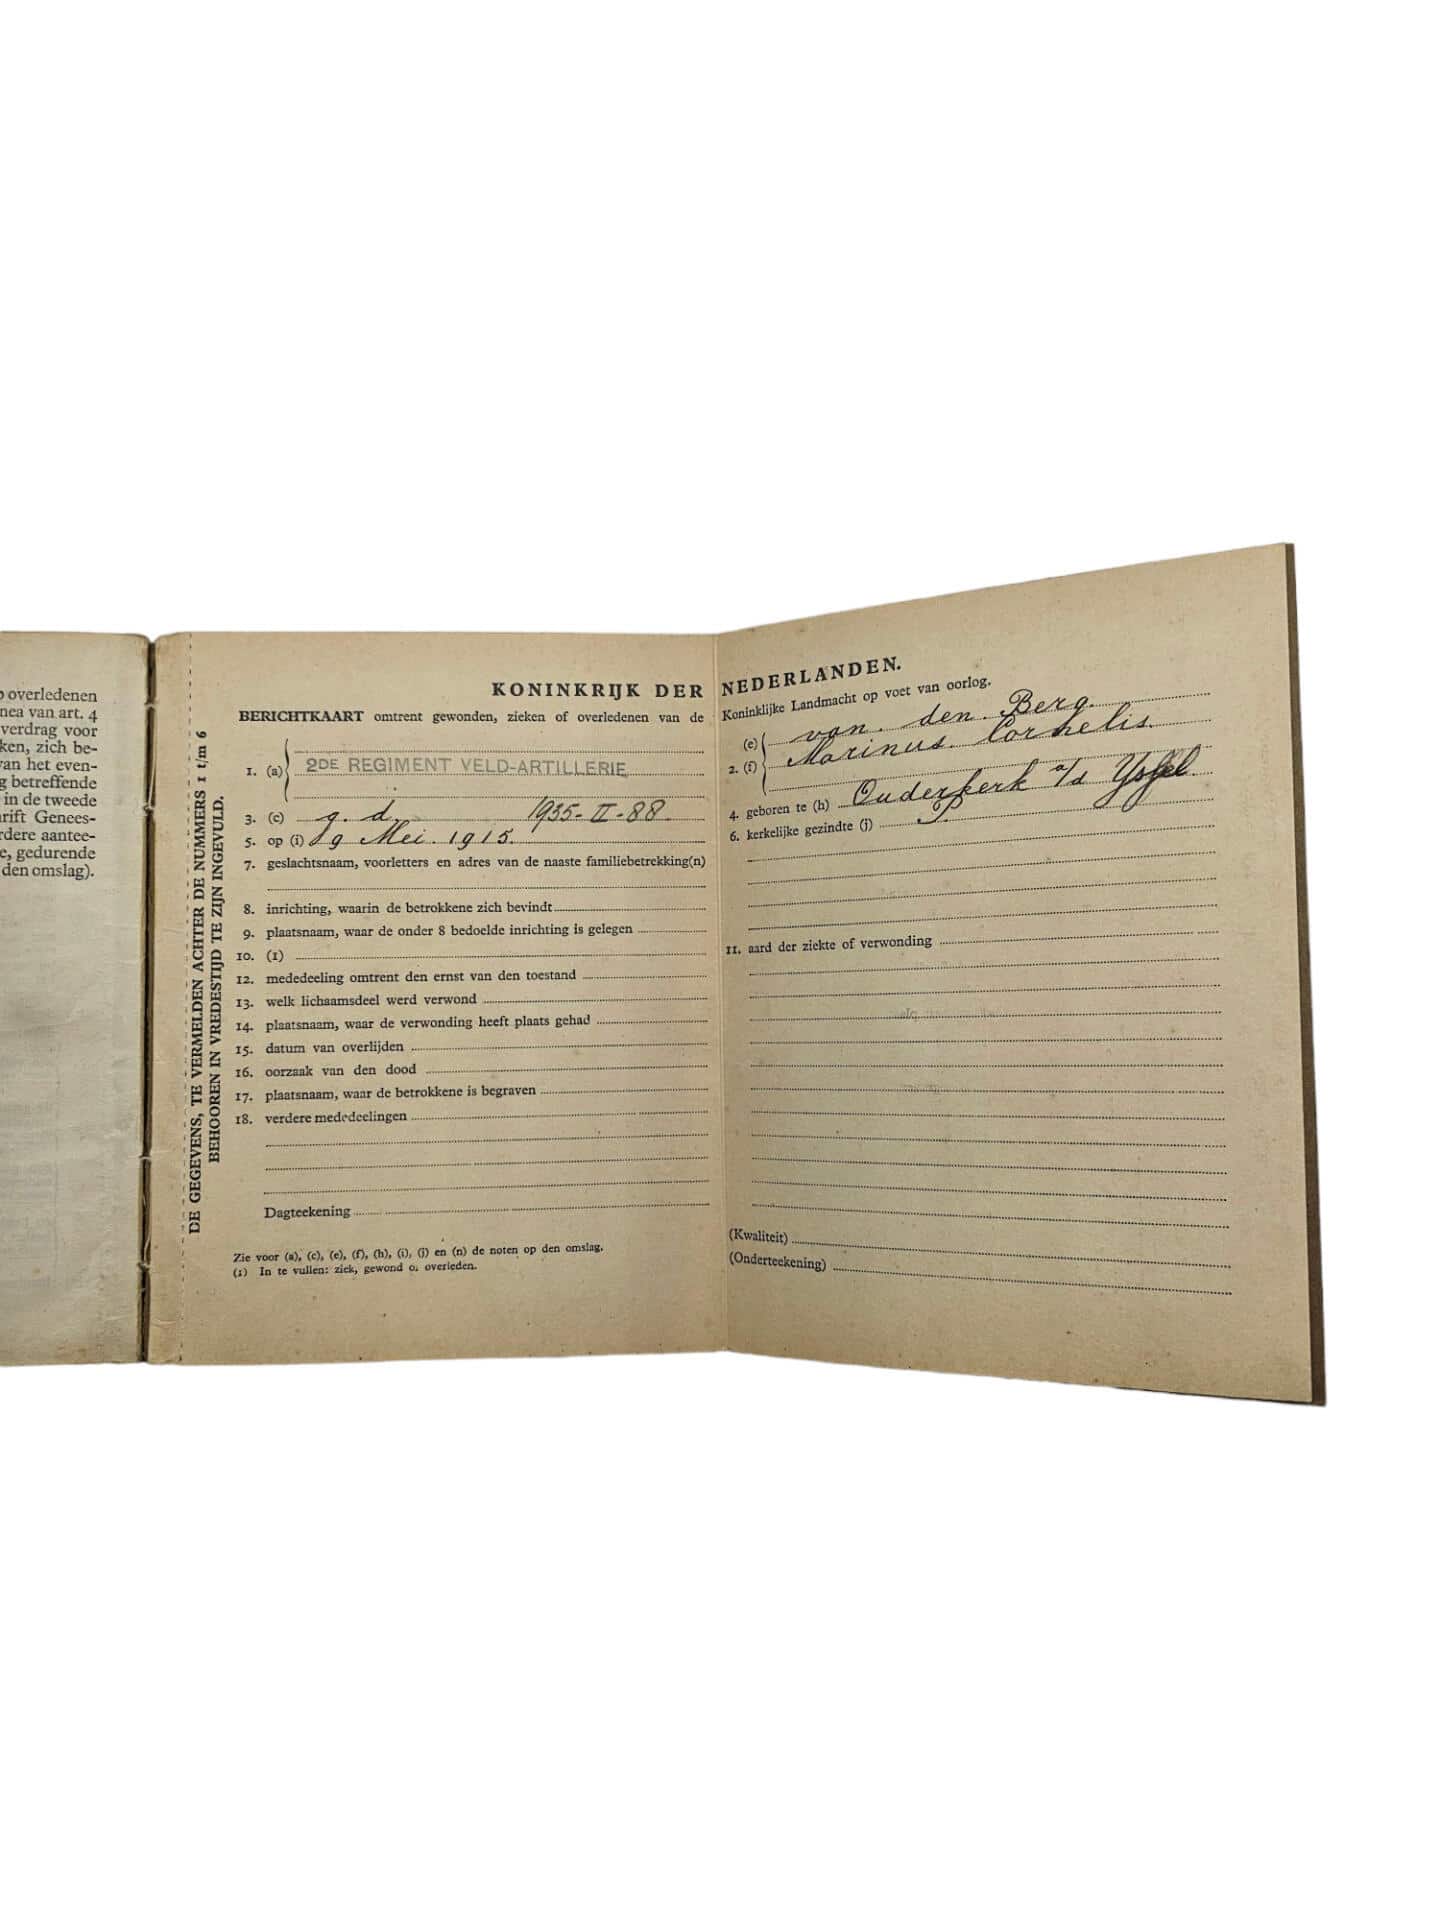 overledenen
nea van art. 4
verdrag voor
ken, zich be-
van het even-
g betreffende
in de tweede
hrift Genees-
rdere aantee-
e, gedurende
den omslag).
DE GEGEVENS, TE VERMELDEN ACHTER DE NUMMERS 1 t/m 6
BEHOOREN IN VREDESTIJD TE ZIJN INGEVULD.
KONINKRIJK DER NEDERLANDEN.
BERICHTKAART omtrent gewonden, zieken of overledenen van de Koninklijke Landmacht op voet van oorlog.
1. (a) 2DE REGIMENT VELD-ARTILLERIE
(e) van den Berg.
2. (f) Marinus Cornelis.
3. (c) g. d. 1935-II-88.
4. geboren te (h) Ouderkerk a/d Yssel.
5. op (i) 9 Mei 1915.
6. kerkelijke gezindte (j)
7. geslachtsnaam, voorletters en adres van de naaste familiebetrekking(n)
8. inrichting, waarin de betrokkene zich bevindt
9. plaatsnaam, waar de onder 8 bedoelde inrichting is gelegen
10. (1)
11. aard der ziekte of verwonding
12. mededeeling omtrent den ernst van den toestand
13. welk lichaamsdeel werd verwond
14. plaatsnaam, waar de verwonding heeft plaats gehad
15. datum van overlijden
16. oorzaak van den dood
17. plaatsnaam, waar de betrokkene is begraven
18. verdere mededeelingen
Dagteekening
(Kwaliteit)
(Onderteekening)
Zie voor (a), (c), (e), (f), (h), (i), (j) en (n) de noten op den omslag.
(1) In te vullen: ziek, gewond of overleden.